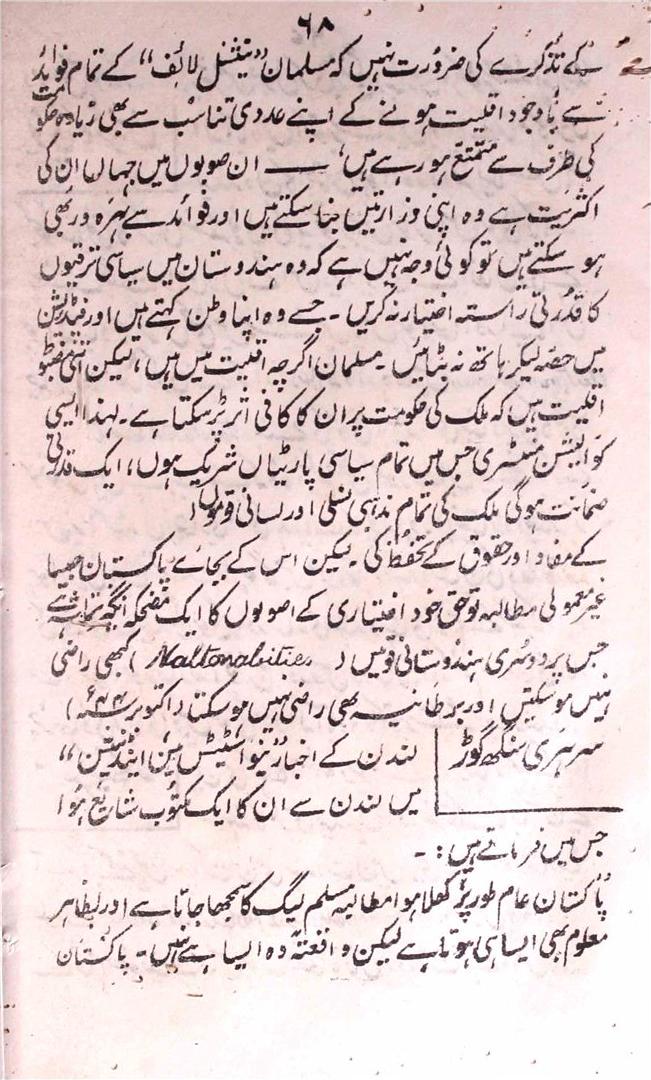 ۶۸
کے تذکرے کی ضرورت نہیں کہ مسلمان "نیشنل لائف" کے تمام فوائد
سے باوجود اقلیت ہونے کے اپنے عددی تناسب سے بھی زیادہ حکومت
کی طرف سے متمتع ہو رہے ہیں، — ان صوبوں میں جہاں ان کی
اکثریت ہے وہ اپنی وزارتیں بنا سکتے ہیں اور فوائد سے بہرہ ور بھی
ہو سکتے ہیں تو کوئی وجہ نہیں ہے کہ وہ ہندوستان میں سیاسی ترقیوں
کا قدرتی راستہ اختیار نہ کریں۔ جسے وہ اپنا وطن کہتے ہیں اور فیڈریشن
میں حصہ لیکر ہاتھ نہ بٹائیں۔ مسلمان اگرچہ اقلیت میں ہیں، لیکن اتنی مضبوط
اقلیت ہیں کہ ملک کی حکومت پر ان کا کافی اثر پڑ سکتا ہے۔ لہذا ایسی
کوالیشن منسٹری جس میں تمام سیاسی پارٹیاں شریک ہوں، ایک قدرتی
ضمانت ہوگی ملک کی تمام مذہبی نسلی اور لسانی قوموں
کے مفاد اور حقوق کے تحفظ کی۔ لیکن اس کے بجائے پاکستان جیسا
غیر معمولی مطالبہ تو حق خود اختیاری کے اصولوں کا ایک مضحکہ انگیز تماشہ ہے
جس پر دوسری ہندوستانی قومیں (Naltonabities) کبھی راضی
نہیں ہو سکتیں اور برطانیہ بھی راضی نہیں ہو سکتا (اکتوبر ۴۴ء)
سر ہری سنگھ گوڑ
لندن کے اخبار "نیو اسٹیٹس مین اینڈ نیشن"
میں لندن سے ان کا ایک مکتوب شایع ہوا
جس میں فرماتے ہیں:۔
پاکستان عام طور پر کھلا ہوا مطالبہ مسلم لیگ کا سمجھا جاتا ہے اور بظاہر
معلوم بھی ایسا ہی ہوتا ہے لیکن واقعتہً وہ ایسا ہے نہیں۔ پاکستان